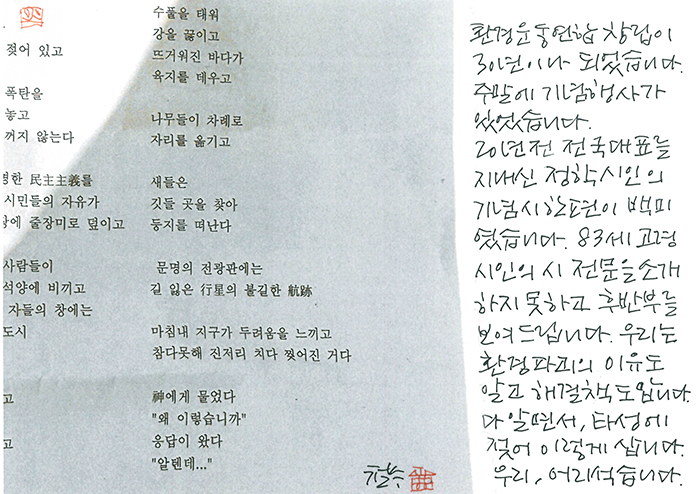 젖어 있고
폭탄을
놓고
꺼지 않는다
명한 民主主義를
시민들의 자유가
강에 줄장미로 덮이고
사람들이
석양에 비끼고
자들의 창에는
도시
고
고
수풀을 태워
강을 끓이고
뜨거워진 바다가
육지를 데우고
나무들이 차례로
자리를 옮기고
새들은
깃들 곳을 찾아
둥지를 떠난다
문명의 전광판에는
길 잃은 行星의 불길한 航跡
마침내 지구가 두려움을 느끼고
참다못해 진저리 치다 찢어진 거다
神에게 물었다
"왜 이렇습니까"
응답이 왔다
"알텐데..."
철수
환경운동연합 창립이
30년이나 되었습니다.
주말에 기념행사가
있었습니다.
20년전 전국대표를
지내신 정학시인의
기념시 한편이 백미
였습니다. 83세 고령
시인의 시 전문을 소개
하지 못하고 후반부를
보여드립니다. 우리는
환경파괴의 이유도
알고 해결책도 압니다.
다 알면서, 타성에
젖어 이렇게 삽니다.
우리, 어리석습니다.